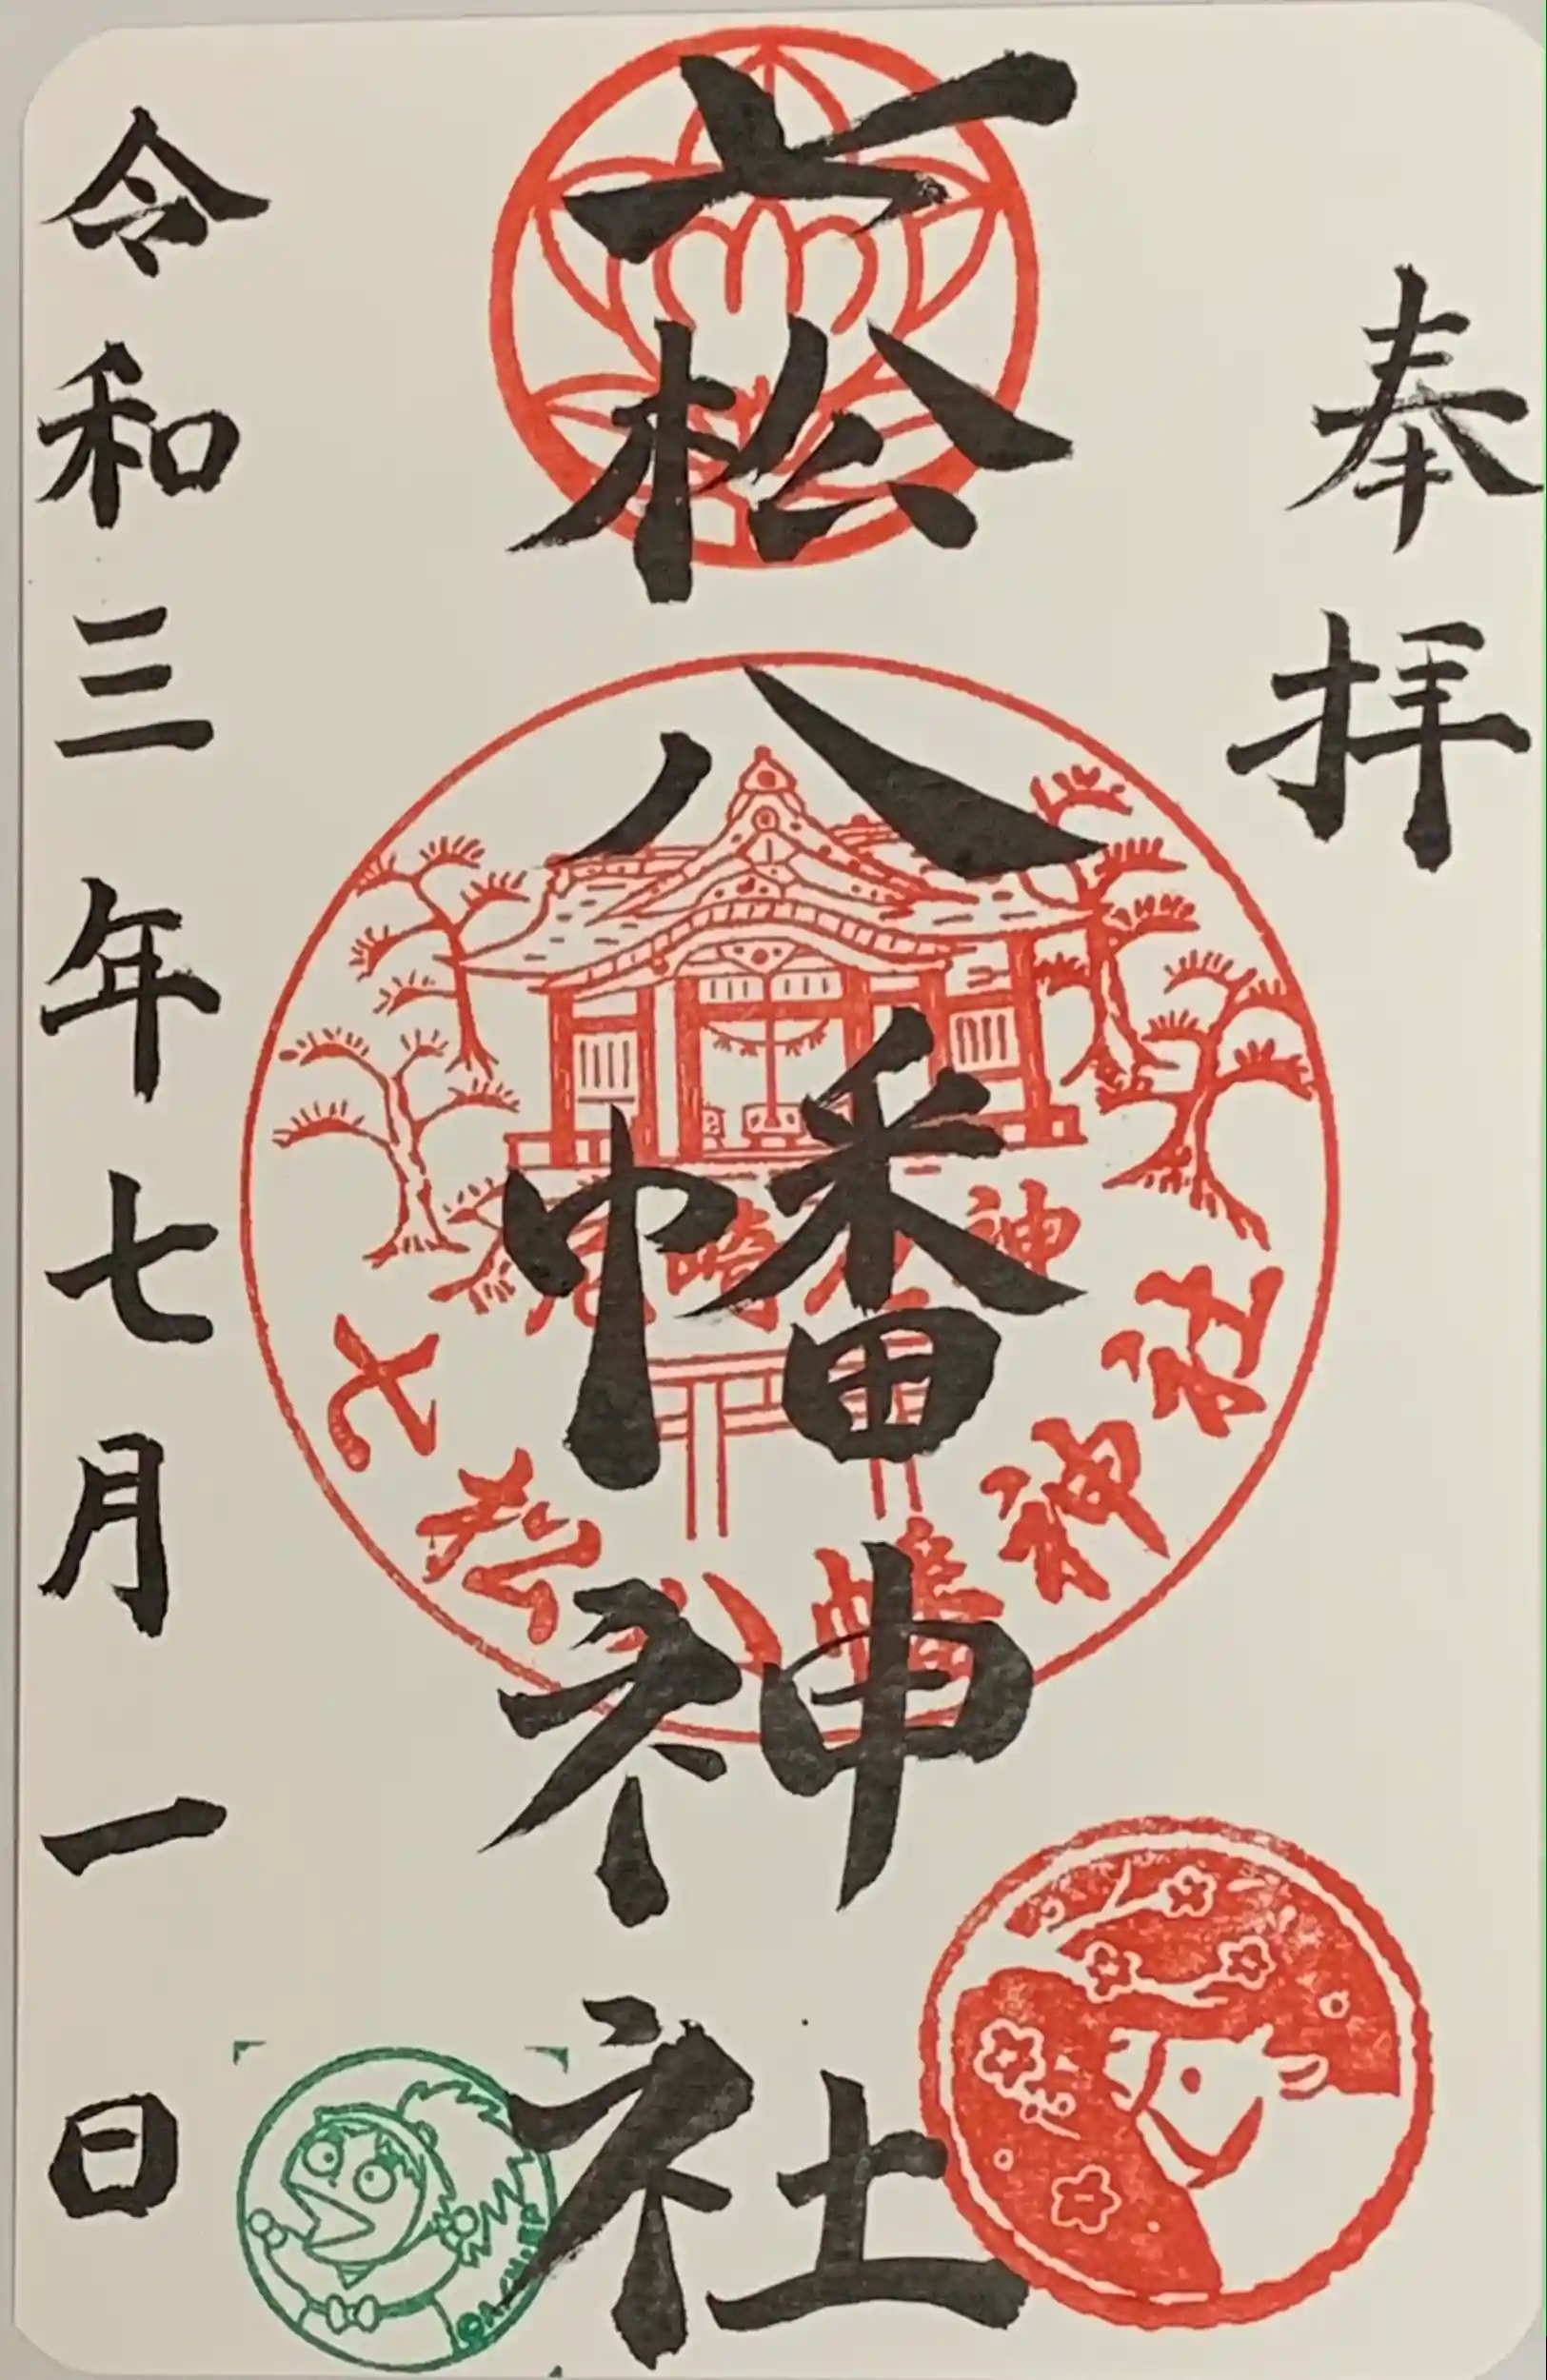 奉拝
七松八幡神社
令和三年七月一日
尼崎厄神
七松八幡神社